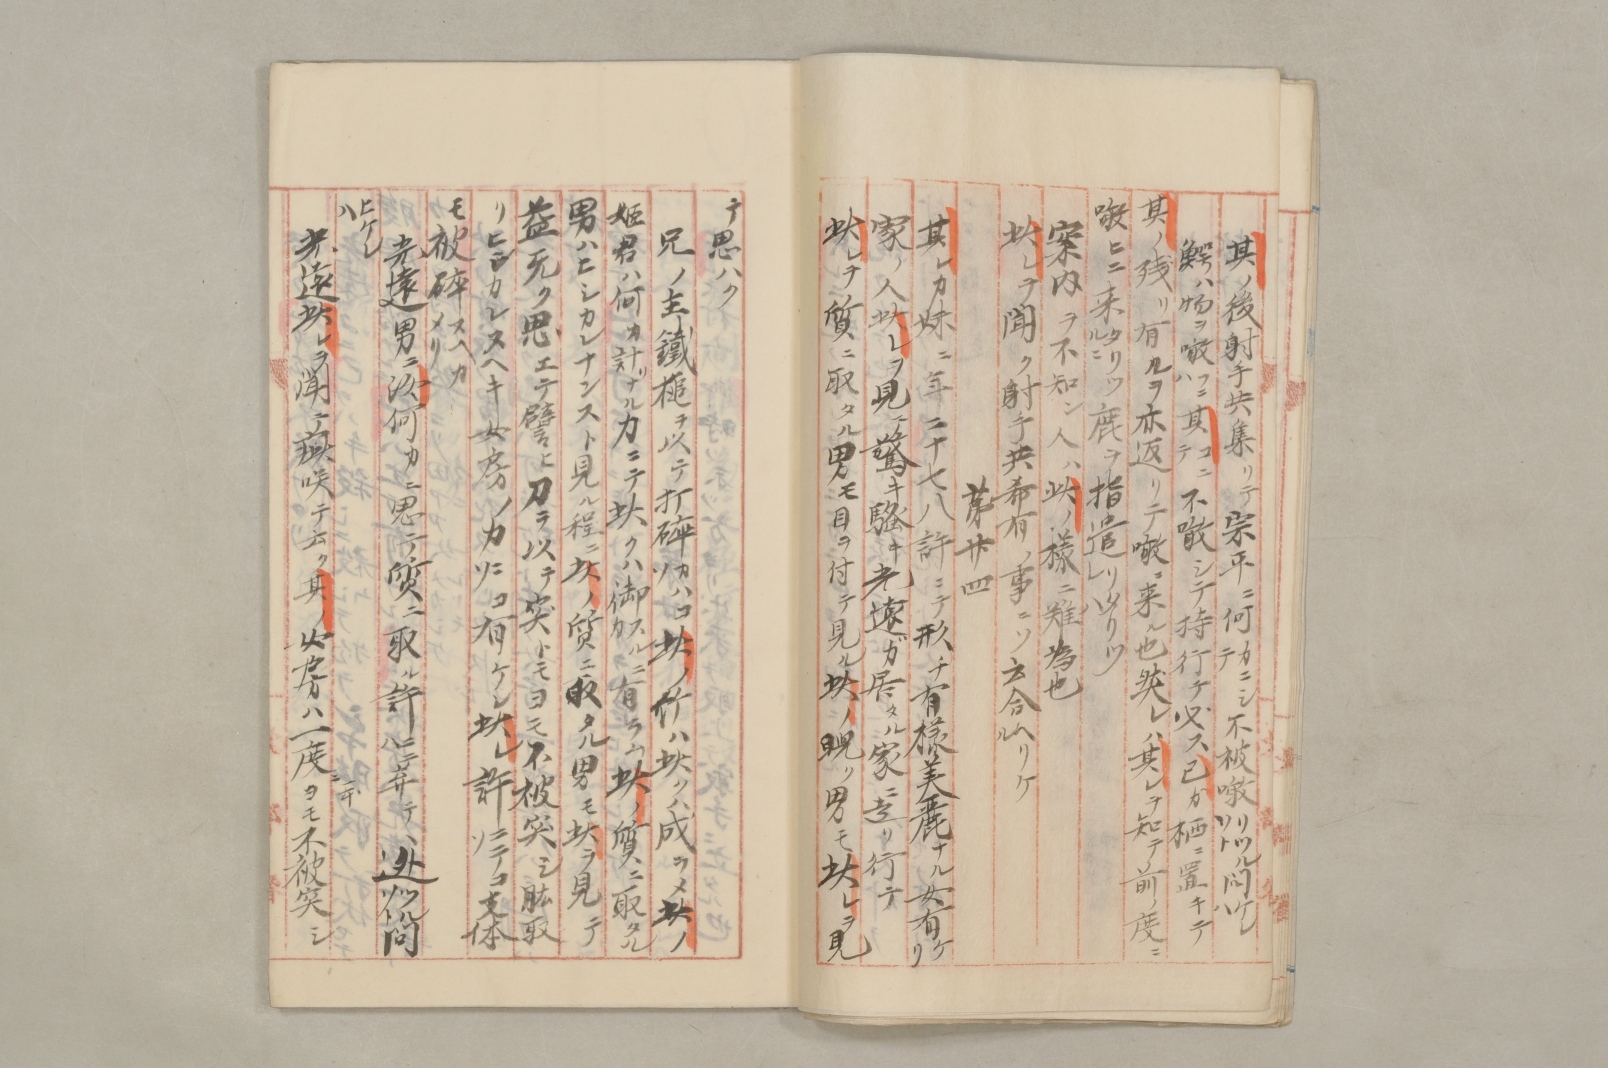 其ノ後射手共集リテ宗平ニ何カニシテ不被噉リツルソト問ケレハ
鰐ハ物ヲ噉ツニハ其コニテ不噉シテ持行テ必ス己カ栖ニ置キテ
其ノ残リ有ルヲ亦返リテ噉ニ来ル也然レハ其レヲ知テ前ノ度ニ
噉ヒニ来タリツルニ鹿ヲ指遣リ
案内ヲ不知ン人ハ此ノ様ニ難為也
此レヲ聞ク射手共希有ノ事ニソ云合ヘリケル
第廿四
其レカ妹ニ年二十七八許ニテ形チ有様美麗ナル女有ケリ
家ノ人此レヲ見テ驚キ騒キ光遠ガ居タル家ニ走リ行テ
此レヲ質ニ取タル男モ目ヲ付テ見ル此ノ睨ク男モ此レヲ見
テ思ハク
兄ノ主鐵槌ヲ以テ打砕カハコソ此ノ竹ハ此クハ成ラメ此ノ
姫君ハ何カ計ナル力ニテ此クハ御スルニカ有ラム此ノ質ニ取タル
男ハヒシカレナンスト見ル程ニ此ノ質ニ取タル男モ此ヲ見テ
益死ク思エテ譬ヒ刀ヲ以テ突トモヨモ不被突シ肱取
リヒシカレヌヘキ女房ノ力ニコソ有ケレ此レ許ニテコソ支体
モ被砕ヌヘカメリ
光遠男ニ汝何カニ思テ質ニ取ル許ニテハ弃テハ迯ツルソト問
ヒケレハ
光遠此レヲ聞テ疵咲テ云ク其ノ女房ハ一度ニヨモ不被突シ